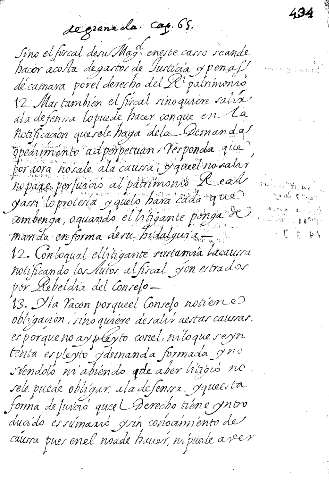 434
de granada. Cap. 65.
Sino el fiscal de su Mag.d en este casso se an de
hacer acosta de gastos de Justicia y penas
de camara por el derecho del R.l patrimonio
12. Mas tambien el fiscal sino quiere salir a
la defensa lo puede hacer con que en la
notificacion que se le haga de la Demanda
o pedimiento ad perpetuan, Responda que
por aora no sale a la caussa, y que el no salir
no pare perjuicio al patrimonio Real
y assi lo protesta y que lo hara cada que
combenga, o quando el litigante ponga de
manda en forma de su hidalguia —
12. Con lo qual el litigante sustancia la caussa
notificando los Autos al fiscal y en estrados
por Rebeldia del Consejo —
13. Y la racon porque el Consejo no tiene
obligacion, sino quiere de salir a estas caussas,
es porque no ay pleyto con el, ni lo que se yn
tenta es pleyto y demanda formada y no
siendolo ni abiendo de aber litigio no
se le puede obligar, a la defensa, y que esta
forma de juicio que el Derecho tiene yntro
ducido es sumario y sin conocimiento de
caussa pues en el no a de hacer, ni puede aver